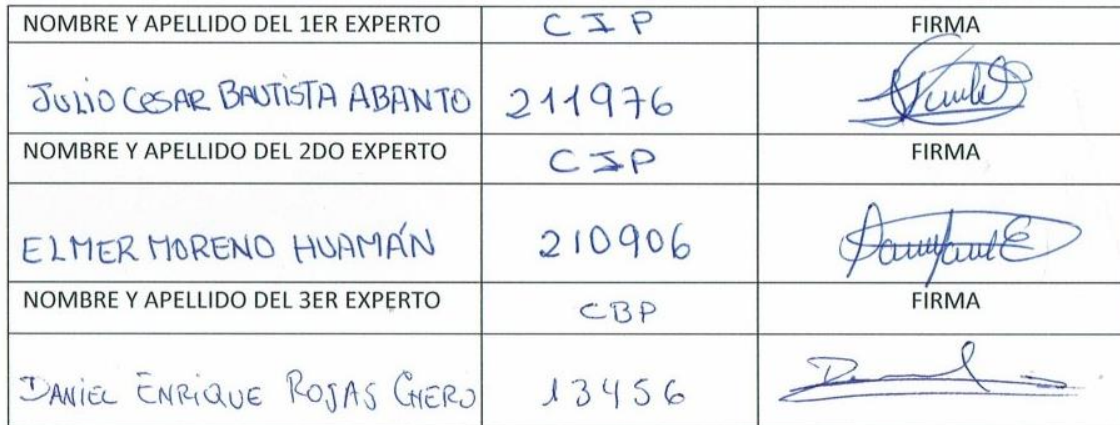 NOMBRE Y APELLIDO DEL 1ER EXPERTO CIP FIRMA
JULIO CESAR BAUTISTA ABANTO 211976
NOMBRE Y APELLIDO DEL 2DO EXPERTO CIP FIRMA
ELMER MORENO HUAMÁN 210906
NOMBRE Y APELLIDO DEL 3ER EXPERTO CBP FIRMA
DANIEL ENRIQUE ROJAS 13456